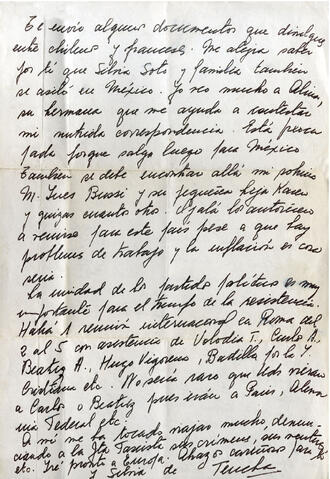 Te envío algunos documentos que divulguen
entre chilenos y franceses. Me alegra saber
por ti que Silvia Soto y familia también
se asiló en México. Yo veo mucho a
su hermana que me ayuda a contestar
mi nutrida correspondencia. Está preocu
pada porque salgo luego para México
También se debe encontrar allá mi sobrino
M. Ines Bussi y su pequeña hija Karen
y quizás cuantos otro. Ojalá los autoricen
a venirse para este país pese a que hay
problemas de trabajo y la inflación es cosa
seria.
La unidad de los partidos políticos es muy
importante para el triunfo de la resistencia.
Habrá 1 reunión internacional en Roma del
2 al 5 con asistencia de Volodia T., Carlos A.
Beatriz A., Hugo Vigorena, Badilla por la Y.
Cristiana etc. No sería raro que Uds vieran
a Carlos o Beatriz pues irán a Paris, Alema
nia Federal etc.
A mí me ha tocado viajar mucho, denun
ciando a la Jta Fascista sus crímenes, sus mentiras
etc. Iré pronto a Europa. Abrazos cariñosos para ti
y Silvia de Tencha